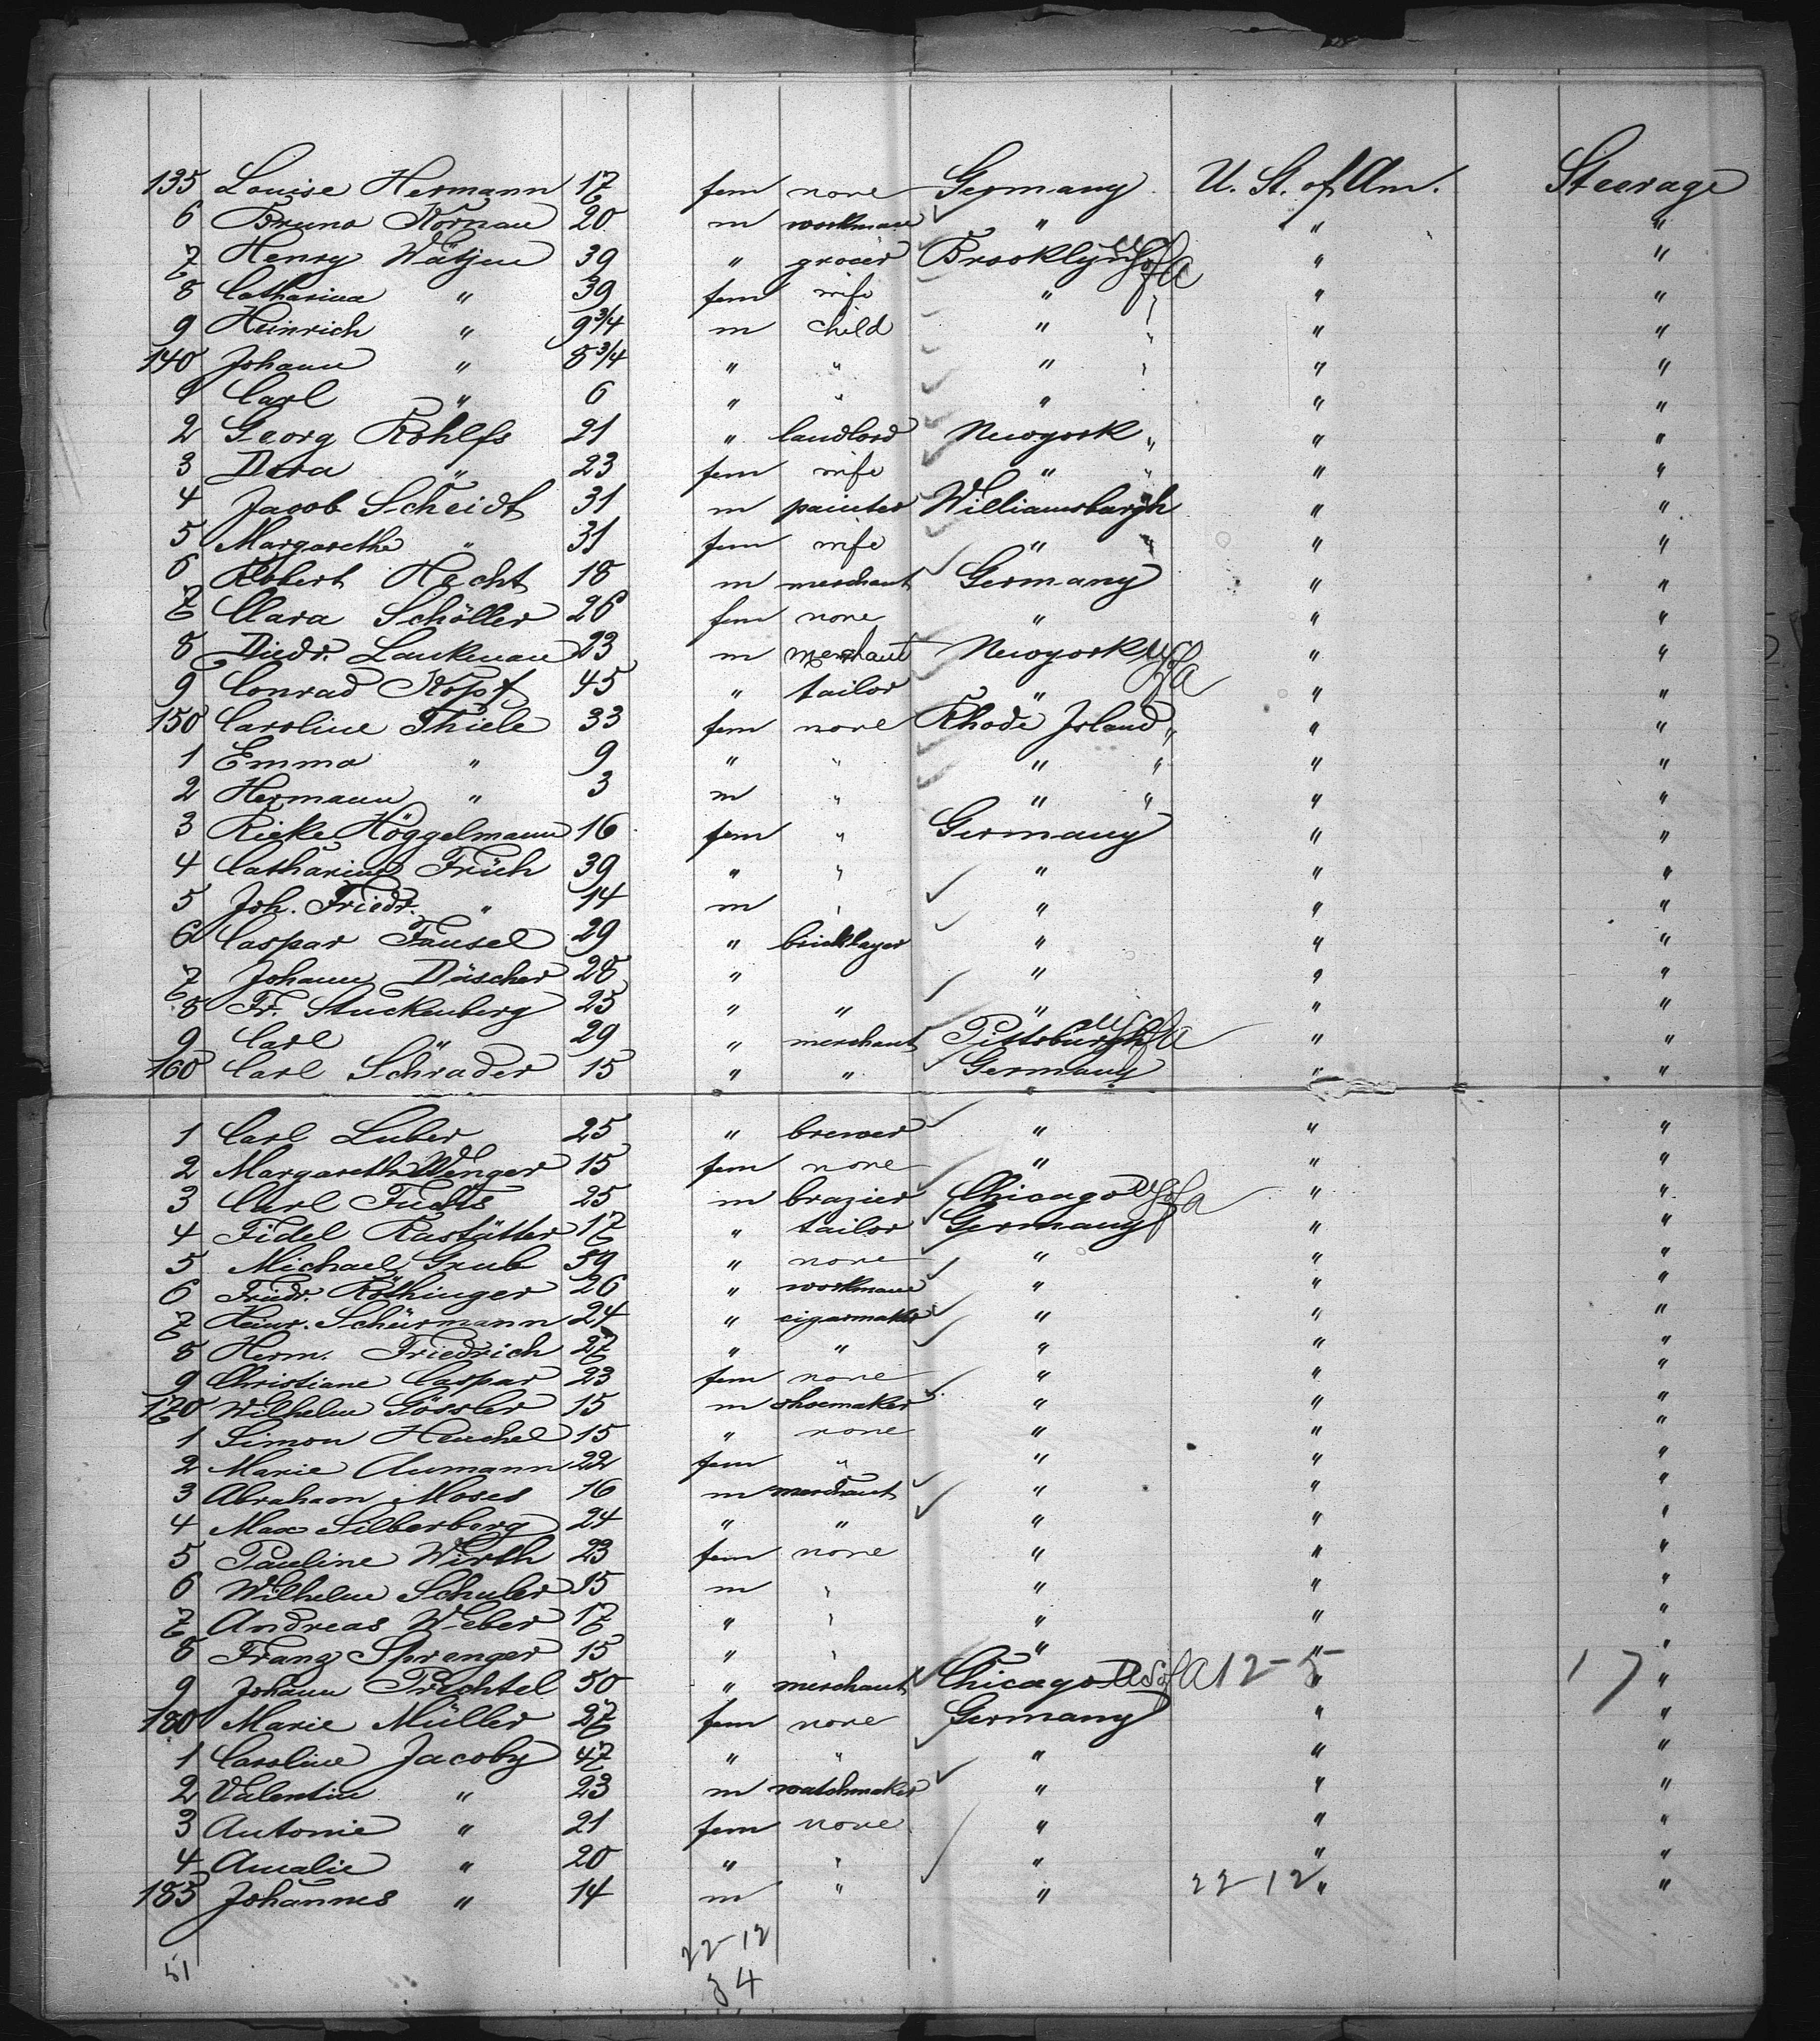 135 Louise Hermann 17 fem none Germany U. St. of Am. Steerage
6 Bruno Kornau 20 m workman " " "
7 Henry Wätjen 39 " grocer Brooklyn U S of A " "
8 Catharina " 39 fem wife " " " "
9 Heinrich " 9 3/4 m child " " " "
140 Johann " 8 3/4 " " " " " "
1 Carl " 6 " " " " "
2 Georg Rohlfs 21 " landlord Newyork " " "
3 Dora " 23 fem wife " " " "
4 Jacob Scheidt 31 m painter Williamsburgh " "
5 Margarethe " 31 fem wife " " " "
6 Robert Hecht 18 m merchant Germany " "
7 Clara Schöller 26 fem none " " "
8 Diedr. Lankenau 23 m merchant Newyork U S of A " "
9 Conrad Kopf 45 " tailor " " "
150 Caroline Thiele 33 fem none Rhode Island " " "
1 Emma " 9 " " " " " "
2 Hermann " 3 m " " " " "
3 Rieke Höggelmann 16 fem " Germany " "
4 Catharine Früh 39 " " " " "
5 Joh. Friedr. " 14 m " " " "
6 Caspar Fausel 29 " bricklayer " " "
7 Johann Däscher 28 " " " "
8 Fr. Stuckenberg 25 " " " " "
9 Carl " 29 " merchant Pittsburgh U S of A " "
160 Carl Schrader 15 " " Germany " "
1 Carl Luber 25 " brewer " " "
2 Margareth Wenger 15 fem none " " "
3 Carl Fuchs 25 m brazier Chicago U S of A " "
4 Fidel Rastätter 17 " tailor Germany " "
5 Michael Grub 59 " none " " "
6 Friedr. Röthinger 26 " workmann " " "
7 Heinr. Schürmann 24 " cigarmaker " " "
8 Herm. Friedrich 27 " " " " "
9 Christiane Caspar 23 fem none " " "
170 Wilhelm Gössler 15 m shoemaker " " "
1 Simon Henchel 15 " none " " "
2 Marie Aumann 22 fem " " " "
3 Abraham Moses 16 m merchant " " "
4 Max Silberberg 24 " " " " "
5 Pauline Wirth 23 fem none " " "
6 Wilhelm Schuler 15 m " " " "
7 Andreas Weber 17 " " " " "
8 Franz Sprenger 15 " " " " "
9 Johann Prechtel 50 " merchant Chicago U S of A 12-5 " 17 "
180 Marie Müller 27 fem none Germany " "
1 Caroline Jacoby 47 " " " " "
2 Valentin " 23 m watchmaker " " "
3 Antonie " 21 fem none " " "
4 Amalie " 20 " " " " "
185 Johannes " 14 m " " 22-12 " "
51 22-12
34